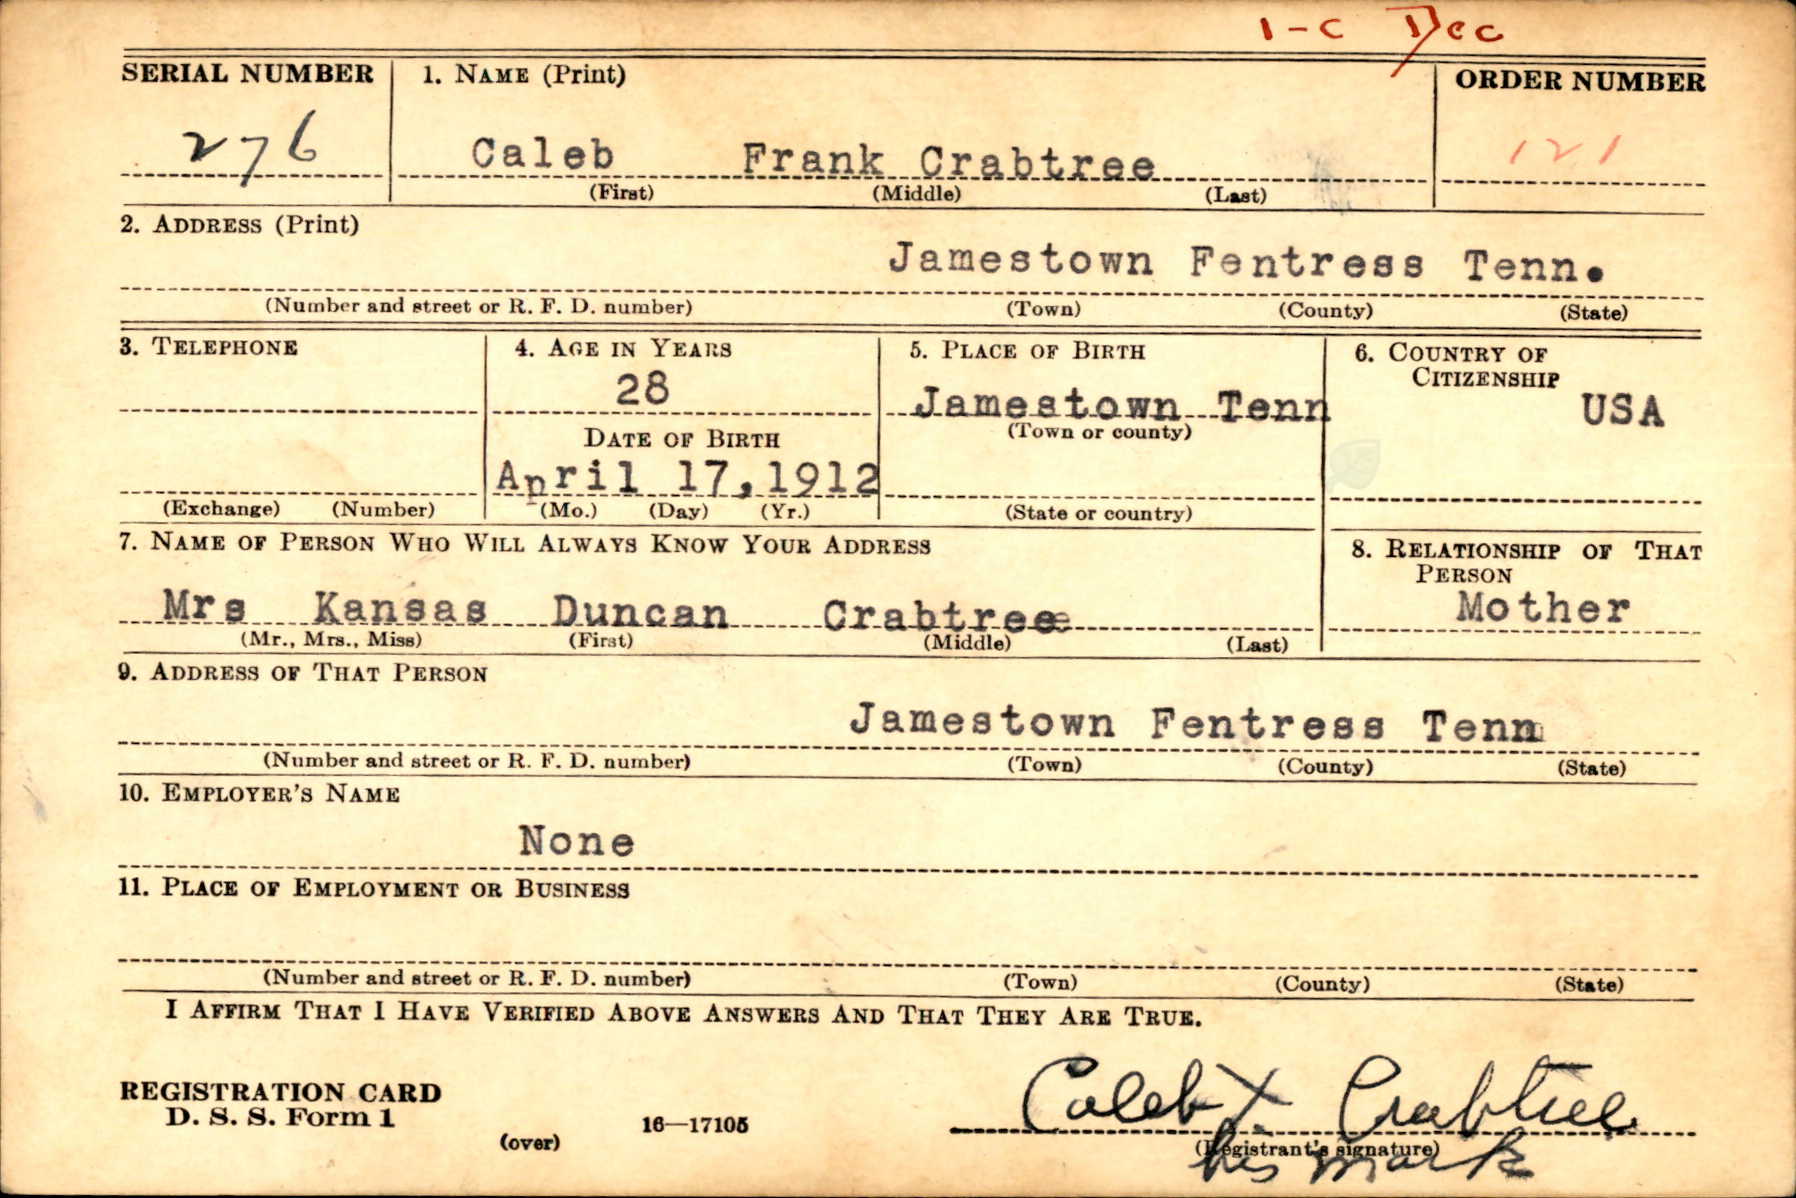 1-C Dec
SERIAL NUMBER 1. NAME (Print) ORDER NUMBER
276 Caleb Frank Crabtree 121
(First) (Middle) (Last)
2. ADDRESS (Print)
Jamestown Fentress Tenn.
(Number and street or R. F. D. number) (Town) (County) (State)
3. TELEPHONE 4. AGE IN YEARS 5. PLACE OF BIRTH 6. COUNTRY OF
CITIZENSHIP
28 Jamestown Tenn USA
DATE OF BIRTH (Town or county)
April 17,1912
(Exchange) (Number) (Mo.) (Day) (Yr.) (State or country)
7. NAME OF PERSON WHO WILL ALWAYS KNOW YOUR ADDRESS 8. RELATIONSHIP OF THAT
PERSON
Mrs Kansas Duncan Crabtree Mother
(Mr., Mrs., Miss) (First) (Middle) (Last)
9. ADDRESS OF THAT PERSON
Jamestown Fentress Tenn
(Number and street or R. F. D. number) (Town) (County) (State)
10. EMPLOYER'S NAME
None
11. PLACE OF EMPLOYMENT OR BUSINESS
(Number and street or R. F. D. number) (Town) (County) (State)
I AFFIRM THAT I HAVE VERIFIED ABOVE ANSWERS AND THAT THEY ARE TRUE.
REGISTRATION CARD
D. S. S. Form 1 Caleb X Crabtree
(over) 16—17105 (Registrant's signature)
his mark